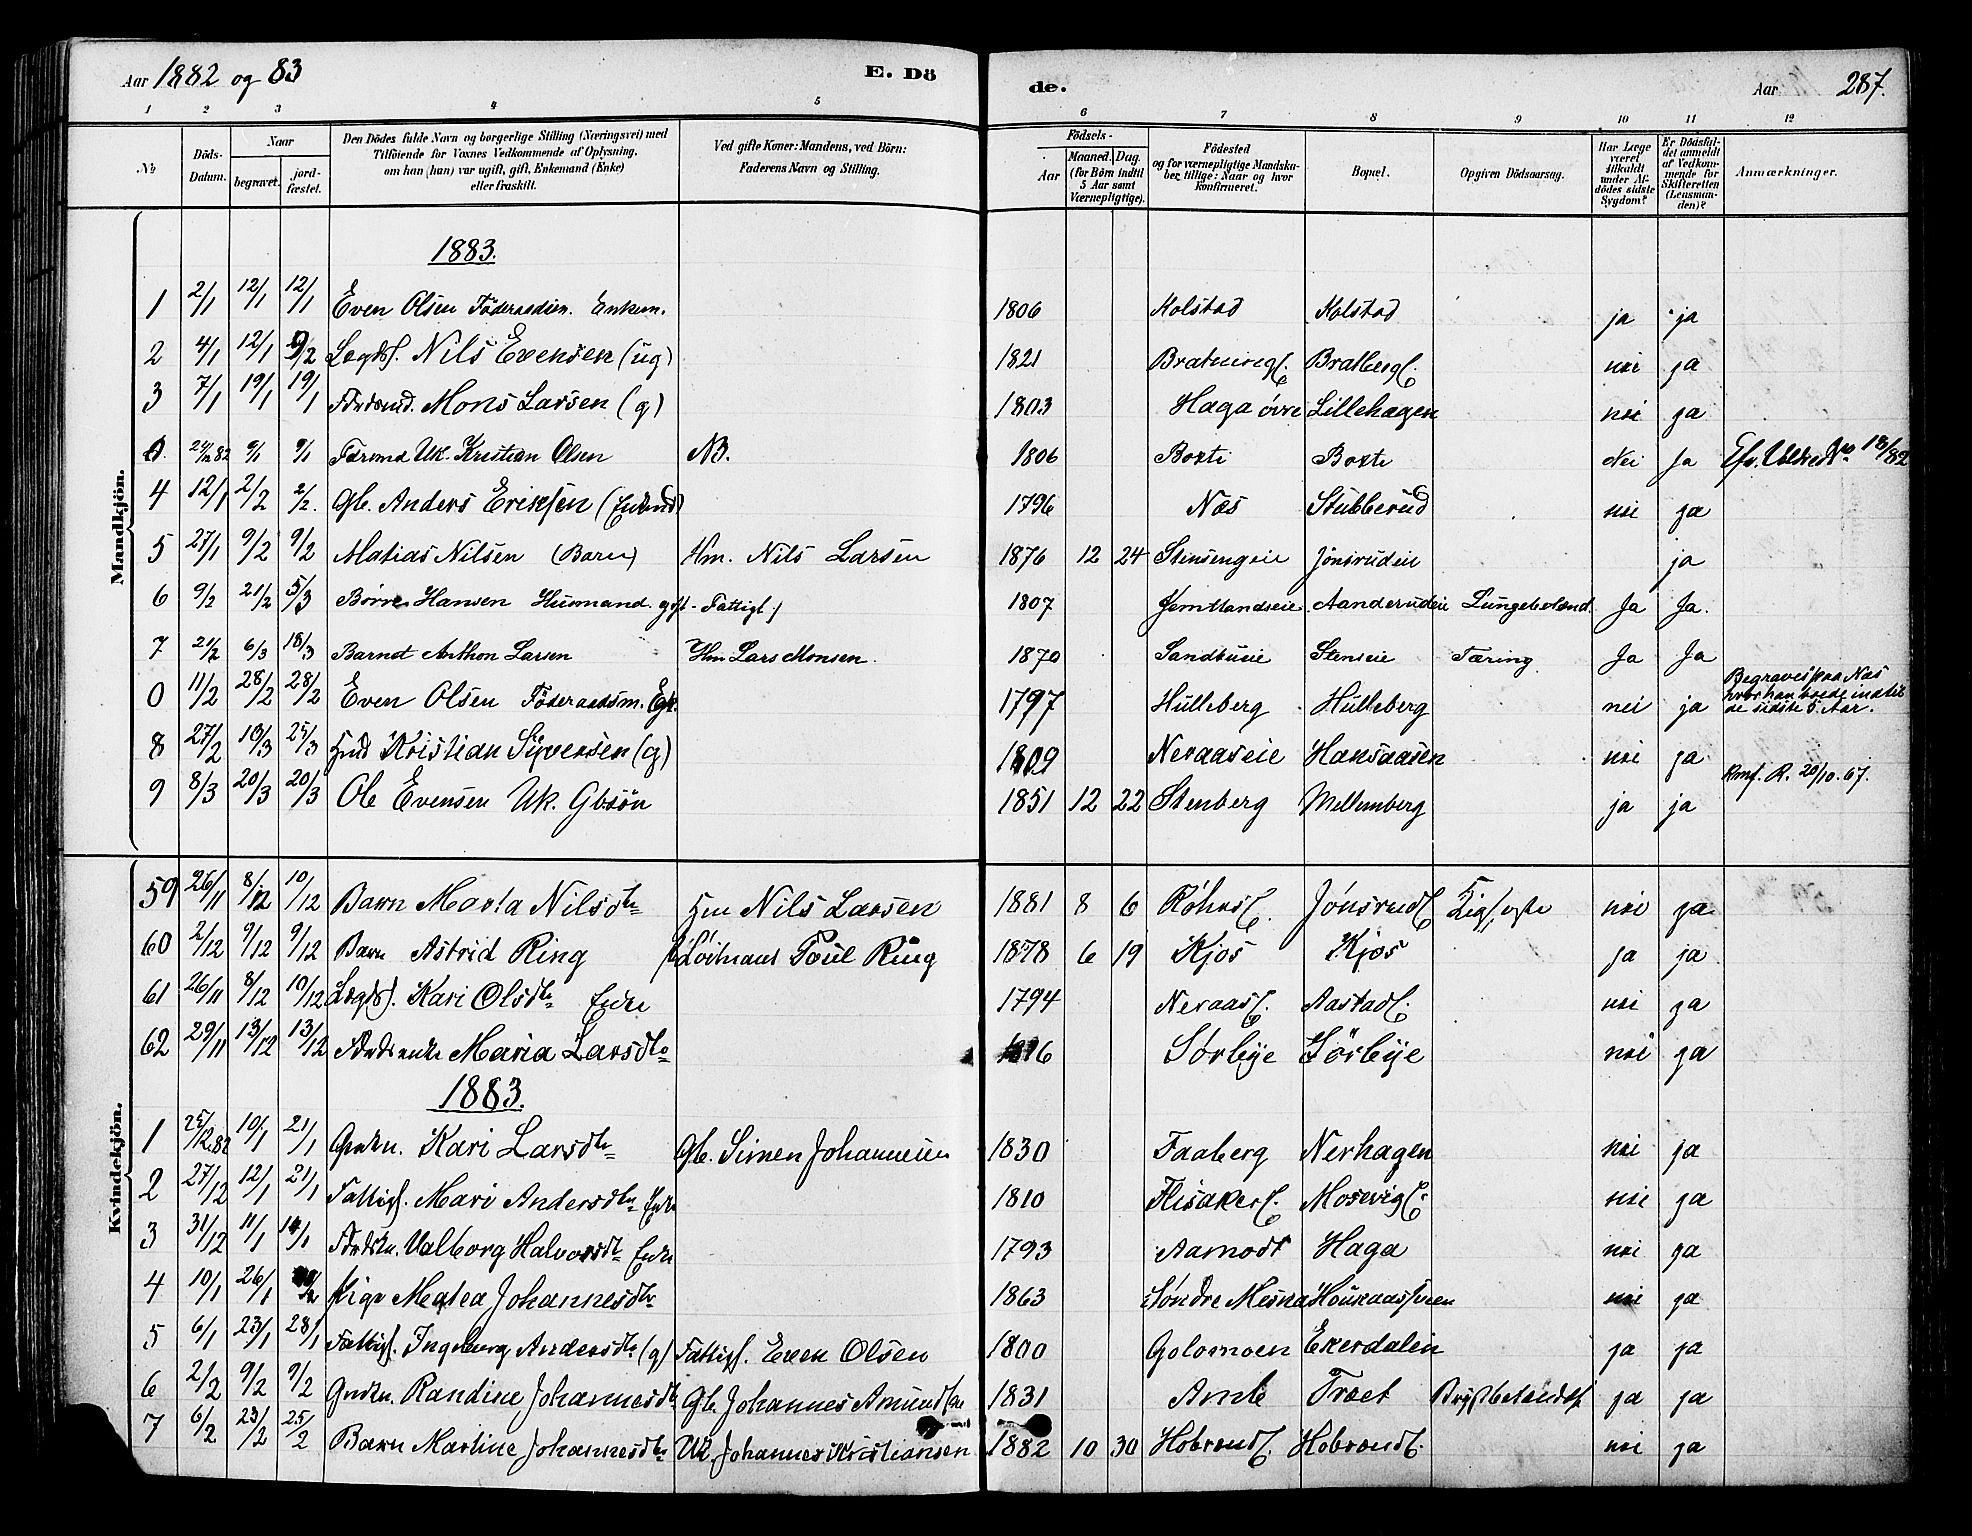 Aar 1882 og 83 E. Dö de. Aar 287.
1 2 3 4 5 6 7 8 9 10 11 12
№ Döds-Datum. Naar begravet. jord-fæstet. Den Dödes fulde Navn og borgerlige Stilling (Næringsvei) med Tilföiende for Voxnes Vedkommende af Oplysning, om han (hun) var ugift, gift, Enkemand (Enke) eller fraskilt. Ved gifte Koner: Mandens, ved Börn: Faderens Navn og Stilling. Födsels- Aar Maaned. Dag. (for Börn indtil 5 Aar samt Værnepligtige). Födested og for værnepligtige Mandskaber tillige: Naar og hvor konfirmeret. Bopæl. Opgiven Dödsaarsag. Har Læge været tilkaldt under Afdödes sidste Sygdom? Er Dödsfaldet anmeldt af Vedkommende for Skifteretten (Lensmanden)? Anmærkninger.
Mandkjön.
1883.
1 2/1 12/1 12/1 Even Olsen Föderaadsm. Enkem. 1806 Kolstad Kolstad ja ja
2 4/1 12/1 9/2 Lægdsl. Nils Evensen (ug) 1821 Bratbergl. nei ja
3 7/1 19/1 19/1 Mons Larsen (g) 1803 Haga övre Lillehagen nei ja
0 9/1 9/1 Uk. Kristian Olsen NB. 1806 Nei Ja 18/82
4 12/1 2/2 2/2. Gb. Anders Eriksen (Enkmd) 1796 Næs Stubberud nei ja
5 27/1 9/2 9/2 Matias Nilsen (Barn) Hm. Nils Larsen 1876 12 24 Stensengeie Jönsrudeie ja
6 9/2 21/2 5/3 Börre Hansen Husmand. gift - Fattigl. 1807 Aanderudeie Ja Ja.
7 21/2 6/3 18/3 Barnet Anthon Larsen Hm Lars Monsen. 1870 Sandbueie Stenseie Tæring Ja Ja
0 11/2 28/2 28/2 Even Olsen Föderaadsm. 1797 Hulleberg Hulleberg nei ja Begraves paa Næs hvor han boede indtil de sidste 5 Aar.
8 27/2 25/3 Hmd Kristian Syversen (g) 1809 Neraaseie Hansaasen nei ja
9 8/3 20/3 20/3 Ole Evensen Uk. Gbsön 1851 12 22 Stenberg Mellemberg ja ja Konf. R. 20/10. 67.
Kvindekjön.
59 26/11 8/12 10/12 Barn Marta Nilsdtr Hm Nils Larsen 1881 8 6 Jönsrudl. nei ja
60 2/12 9/12 9/12 Barn Astrid Ring Löitnant Poul Ring 1878 6 19 Kjos Kjos ja ja
61 26/11 8/12 10/12 Lægdsl. Kari Olsdtr Enke 1794 Neraasl. Aastadl. nei ja
62 29/11 13/12 13/12 Maria Larsdtr Sörbye Sörbye nei ja
1883.
1 25/12 82 10/1 21/1 Kari Larsdtr Gb. Simen Johannesen 1830 Faaberg Nerhagen nei ja
2 27/12 12/1 21/1 Fattigl. Mari Andersdtr Enke 1810 Flisakerl. nei ja
3 31/12 11/1 14/1 Valborg Halvorsdtr Enke 1793 Aamodt Haga nei ja
4 10/1 26/1 Pige Matea Johannesdtr 1863 Söndre Mesna nei ja
5 6/1 23/1 28/1 Fattigl. Ingeborg Andersdtr (g) Fattigl. Even Olsen 1800 Golomoen Ekerdalen ja ja
6 2/2 9/2 9/2 Randine Johannesdtr Gb. Johannes Amundsen 1831 Amb Træet Brystbetændels ja ja
7 6/2 23/2 25/2 Barn Martine Johannesdtr Uk. Johannes Kristiansen 1882 10 30 nei ja